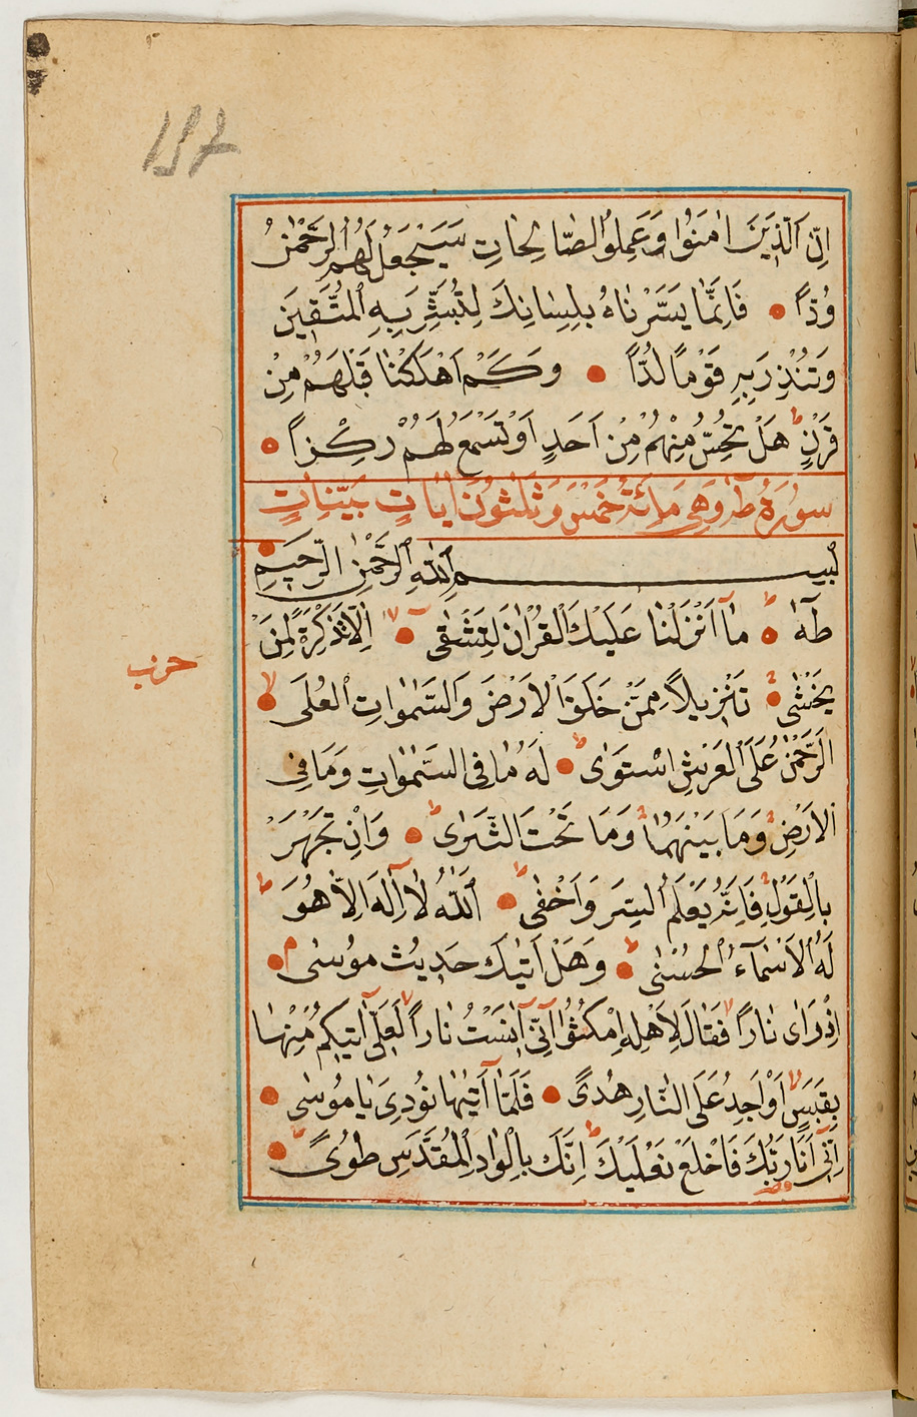 اِنَّ الَّذِينَ اٰمَنُوا وَعَمِلُوا الصَّالِحَاتِ سَيَجْعَلُ لَهُمُ الرَّحْمٰنُ
وُدًّا فَاِنَّمَا يَسَّرْنَاهُ بِلِسَانِكَ لِتُبَشِّرَ بِهِ الْمُتَّقِينَ
وَتُنْذِرَ بِهِ قَوْمًا لُدًّا وَكَمْ اَهْلَكْنَا قَبْلَهُمْ مِنْ
قَرْنٍ هَلْ تُحِسُّ مِنْهُمْ مِنْ اَحَدٍ اَوْ تَسْمَعُ لَهُمْ رِكْزًا
سُورَةُ طٰهٰ وَهِيَ مِائَةُ خَمْسَ وَثَلٰثُونَ اٰيَاتٍ بَيِّنَاتٍ
بِسْمِ اللّٰهِ الرَّحْمٰنِ الرَّحِيمِ
طٰهٰ مَا اَنْزَلْنَا عَلَيْكَ الْقُرْاٰنَ لِتَشْقٰى اِلَّا تَذْكِرَةً لِمَنْ
حزب
يَخْشٰى تَنْزِيلًا مِمَّنْ خَلَقَ الْاَرْضَ وَالسَّمٰوَاتِ الْعُلٰى
اَلرَّحْمٰنُ عَلَى الْعَرْشِ اسْتَوٰى لَهُ مَا فِى السَّمٰوَاتِ وَمَا فِى
الْاَرْضِ وَمَا بَيْنَهُمَا وَمَا تَحْتَ الثَّرٰى وَاِنْ تَجْهَرْ
بِالْقَوْلِ فَاِنَّهُ يَعْلَمُ السِّرَّ وَاَخْفٰى اَللّٰهُ لَا اِلٰهَ اِلَّا هُوَ
لَهُ الْاَسْمَاءُ الْحُسْنٰى وَهَلْ اَتٰيكَ حَدِيثُ مُوسٰى
اِذْ رَاٰى نَارًا فَقَالَ لِاَهْلِهِ امْكُثُوا اِنِّى اٰنَسْتُ نَارًا لَعَلِّى اٰتِيكُمْ مِنْهَا
بِقَبَسٍ اَوْ اَجِدُ عَلَى النَّارِ هُدًى فَلَمَّا اَتٰيهَا نُودِىَ يَا مُوسٰى
اِنِّى اَنَا رَبُّكَ فَاخْلَعْ نَعْلَيْكَ اِنَّكَ بِالْوَادِ الْمُقَدَّسِ طُوًى